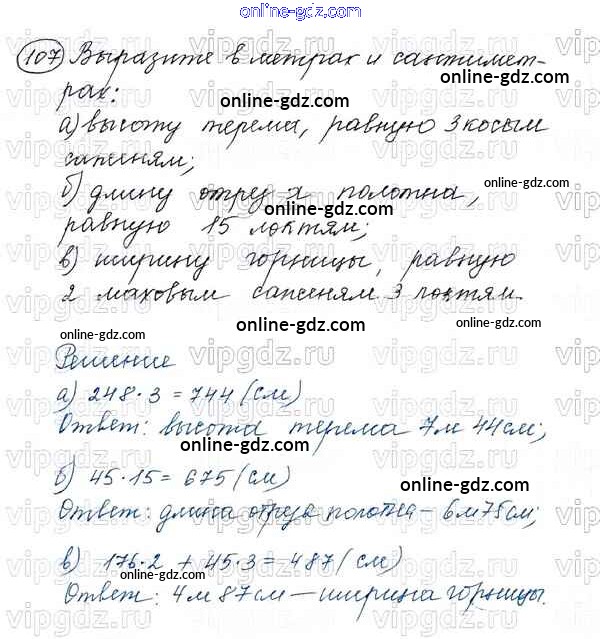 online-gdz.com
107 Выразите в метрах и сантимет-
рах:
online-gdz.com
а) высоту терема, равную 3 косым
саженям;
online-gdz.com
б) длину отреза полотна,
online-gdz.com
равную 15 локтям;
online-gdz.com
в) ширину горницы, равную
2 маховым саженям 3 локтям.
online-gdz.com
online-gdz.com
Решение
online-gdz.com
а) 248·3=744 (см)
Ответ: высота терема 7м 44см;
online-gdz.com
б) 45·15=675 (см)
online-gdz.com
Ответ: длина отреза полотна – 6м75см;
online-gdz.com
в) 176·2 + 45·3 = 487 (см)
online-gdz.com
Ответ: 4м 87см – ширина горницы.
online-gdz.com
vipgdz.ru